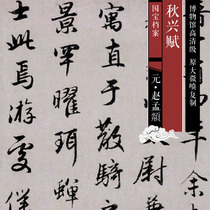 博物馆高清级 原大微喷复制
秋兴赋
国宝档案
元·赵孟頫
余
尉
寓直于散騎
景罕曜珥蟬
此焉遊處僕